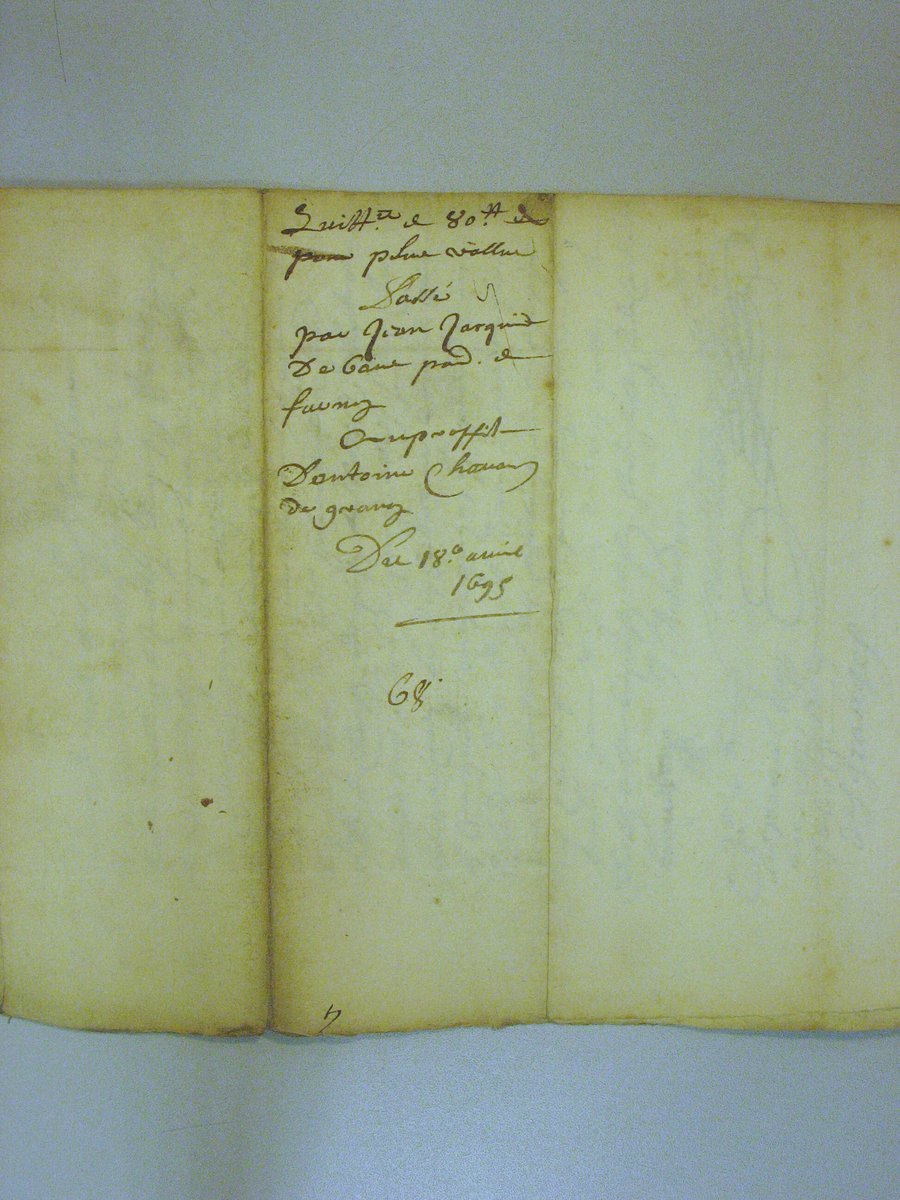 Quitt.ce de 80.tt de
pour plue vallue
Passé
par Jean Jacquid
De bane pad. de
farnoz
Au proffit
D'antoine Chavan
de granoz
Du 18.e avril
1695
68.